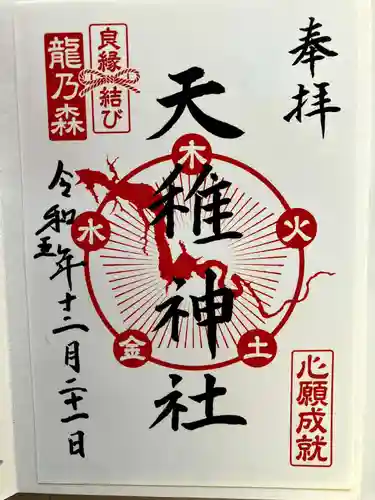 奉拝
天稚神社
良縁結び
龍乃森
木
火
土
金
水
令和五年十二月二十一日
心願成就